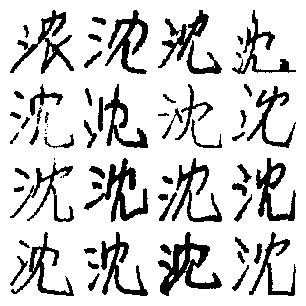 浓沈沈沈
沈沈沈沈
沈沈沈沈
沈沈沈沈